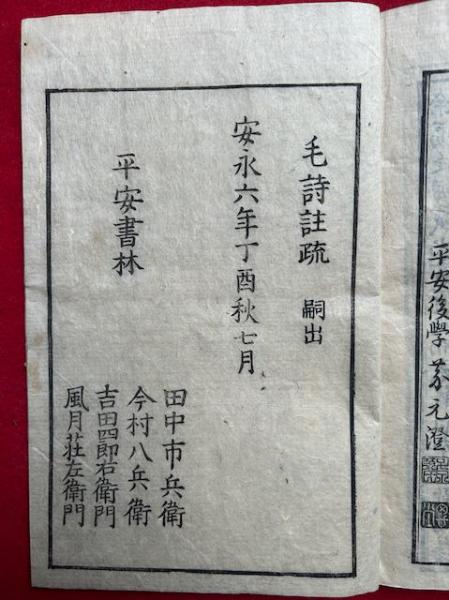 平安後學 芥元澄
毛詩註疏 嗣出
安永六年丁酉秋七月
平安書林
田中市兵衛
今村八兵衛
吉田四郎右衛門
風月荘左衛門